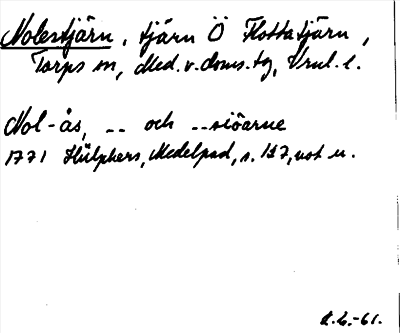 Nolestjärn, tjärn Ö Flottatjärn,
Torps sn, Med. v. doms. tg, Vrnl. l.
Nol-ås, -- och --siöarne
1771 Hülphers, Medelpad, s. 127, not u.
-61.